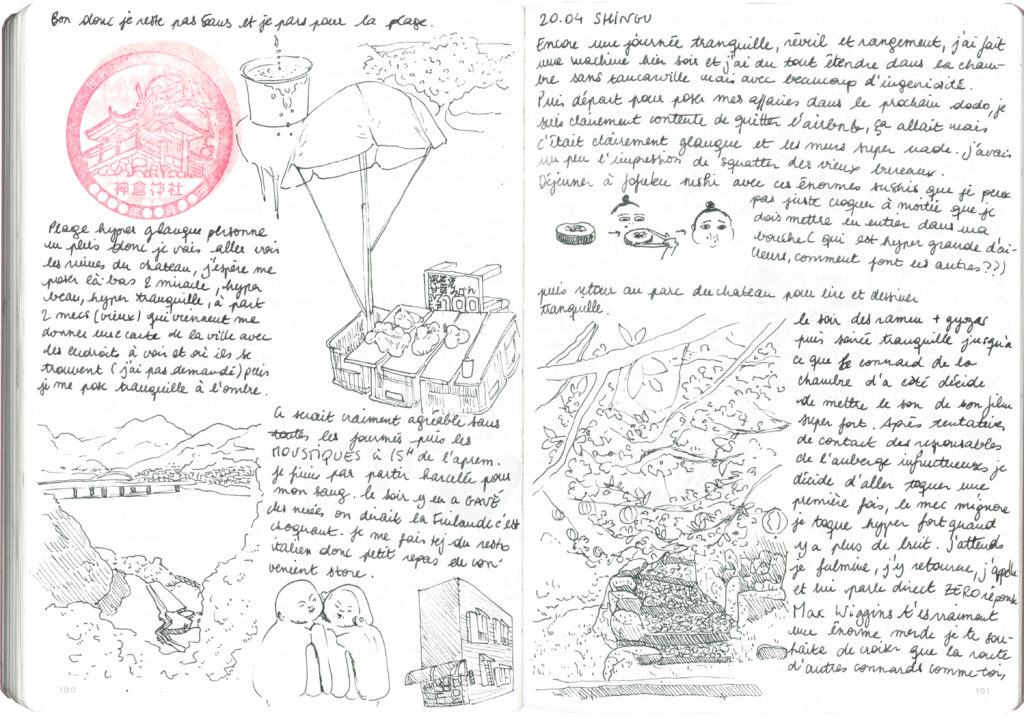 Bon donc je reste pas sans et je pars pour la plage.
神倉神社
Plage hyper glauque personne
en plus donc je vais aller voir
les ruines du chateau, j'espère me
poser là-bas & miracle, hyper
beau, hyper tranquille, à part
2 mecs (vieux) qui viennent me
donner une carte de la ville avec
les endroits à voir et où ils se
trouvent (j'ai pas demandé) puis
je me pose tranquille à l'ombre.
Ça serait vraiment agréable sans
toutes les journées puis les
MOUSTIQUES à 15H de l'aprem.
Je finis par partir harcelée pour
mon sang. le soir y en a GAVÉ
des nuées on dirait la Finlande c'est
choquant. je me fais tej du resto
italien donc petit repas de con
venient store.
190
20.04 SHINGU
Encore une journée tranquille, réveil et rangement, j'ai fait
une machine hier soir et j'ai du tout étendre dans la cham-
bre sans tancarville mais avec beaucoup d'ingéniosité.
Puis départ pour poser mes affaires dans le prochain dodo, je
suis clairement contente de quitter l'airbnb, ça allait mais
c'était clairement glauque et les murs super nade. j'avais
un peu l'impression de squatter des vieux bureaux.
Déjeuner à Jofuku sushi avec ces énormes sushis que je peux
pas juste croquer à moitié que je
dois mettre en entier dans ma
bouche (qui est hyper grande d'ai-
lleurs, comment font les autres??)
puis retour au parc du chateau pour lire et dessiner
tranquille.
le soir des ramen + gyozas
puis soirée tranquille jusqu'à
ce que le connard de la
chambre d'a coté décide
de mettre le son de son film
super fort. Après tentatives
de contact des responsables
de l'auberge infructueuses je
décide d'aller toquer une
première fois, le mec m'ignore
je toque hyper fort quand
y a plus de bruit. j'attends
je fulmine, j'y retourne, j'appelle
et lui parle direct ZÉRO réponse
Max Wiggins t'es vraiment
une énorme merde je te sou-
haite de croiser que la route
d'autres connards comme toi,
191